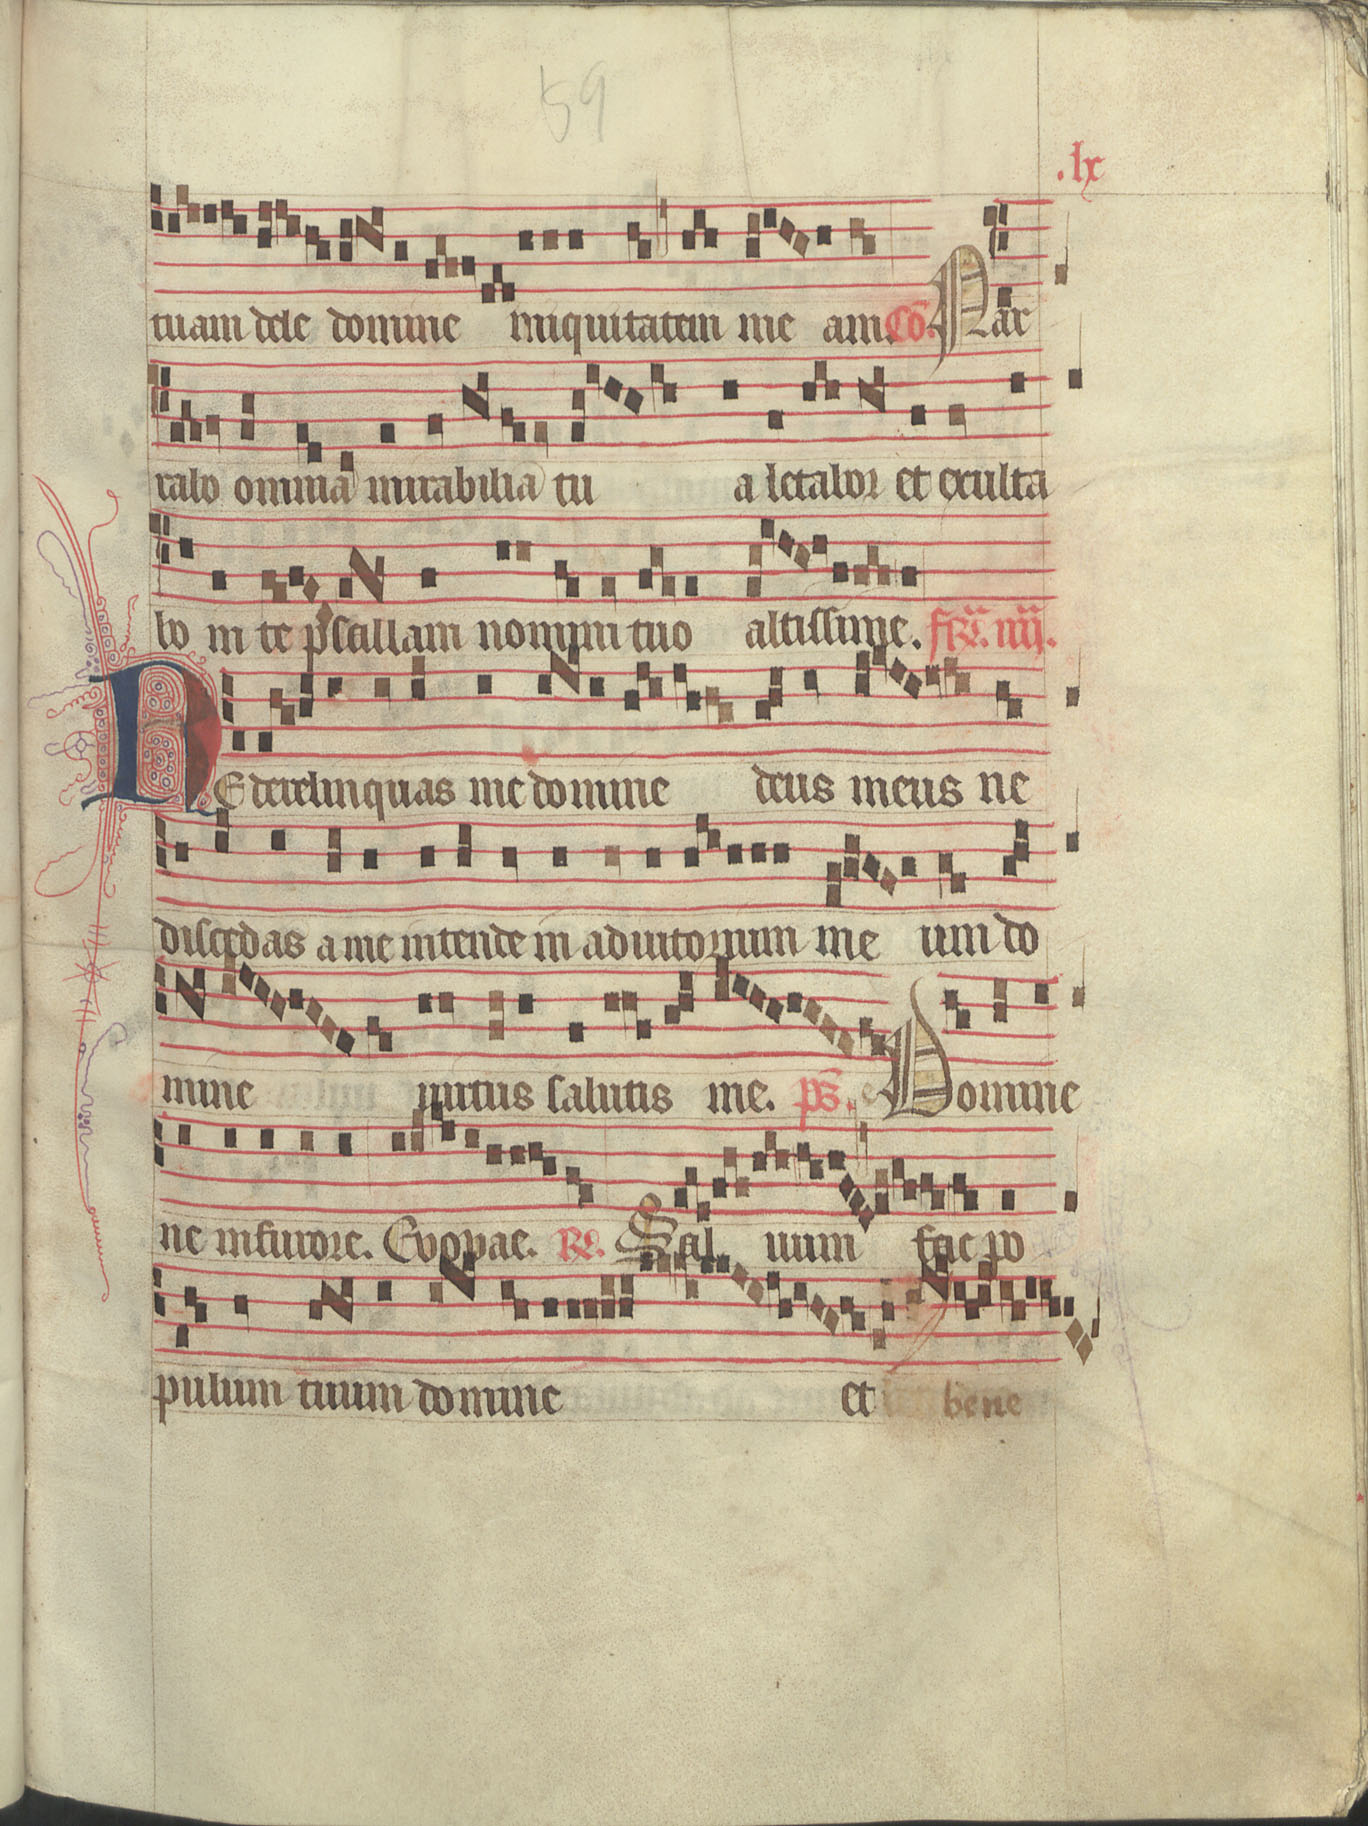 59
.lx
tuam dele domine iniquitatem me am. Cō. Nar
rabo omnia mirabilia tu a letabor et exulta
bo in te psallam nomini tuo altissime. fr̄. iiij.
NE derelinquas me domine deus meus ne
discedas a me intende in adiutorium me um do
mine uirtus salutis me e. ps̄. Domine
ne in furore. Euouae. R. Sal uum fac po
pulum tuum domine et bene